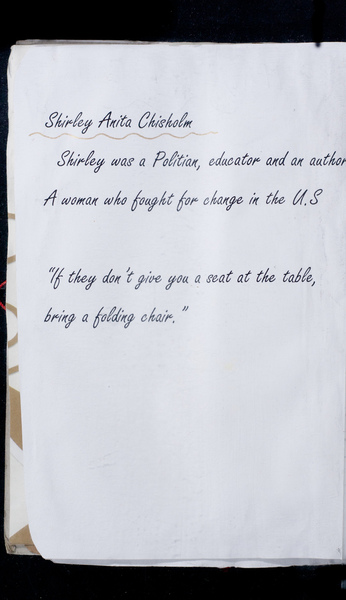 Shirley Anita Chisholm
Shirley was a Politian, educator and an author
A woman who fought for change in the U.S
"If they don't give you a seat at the table,
bring a folding chair."